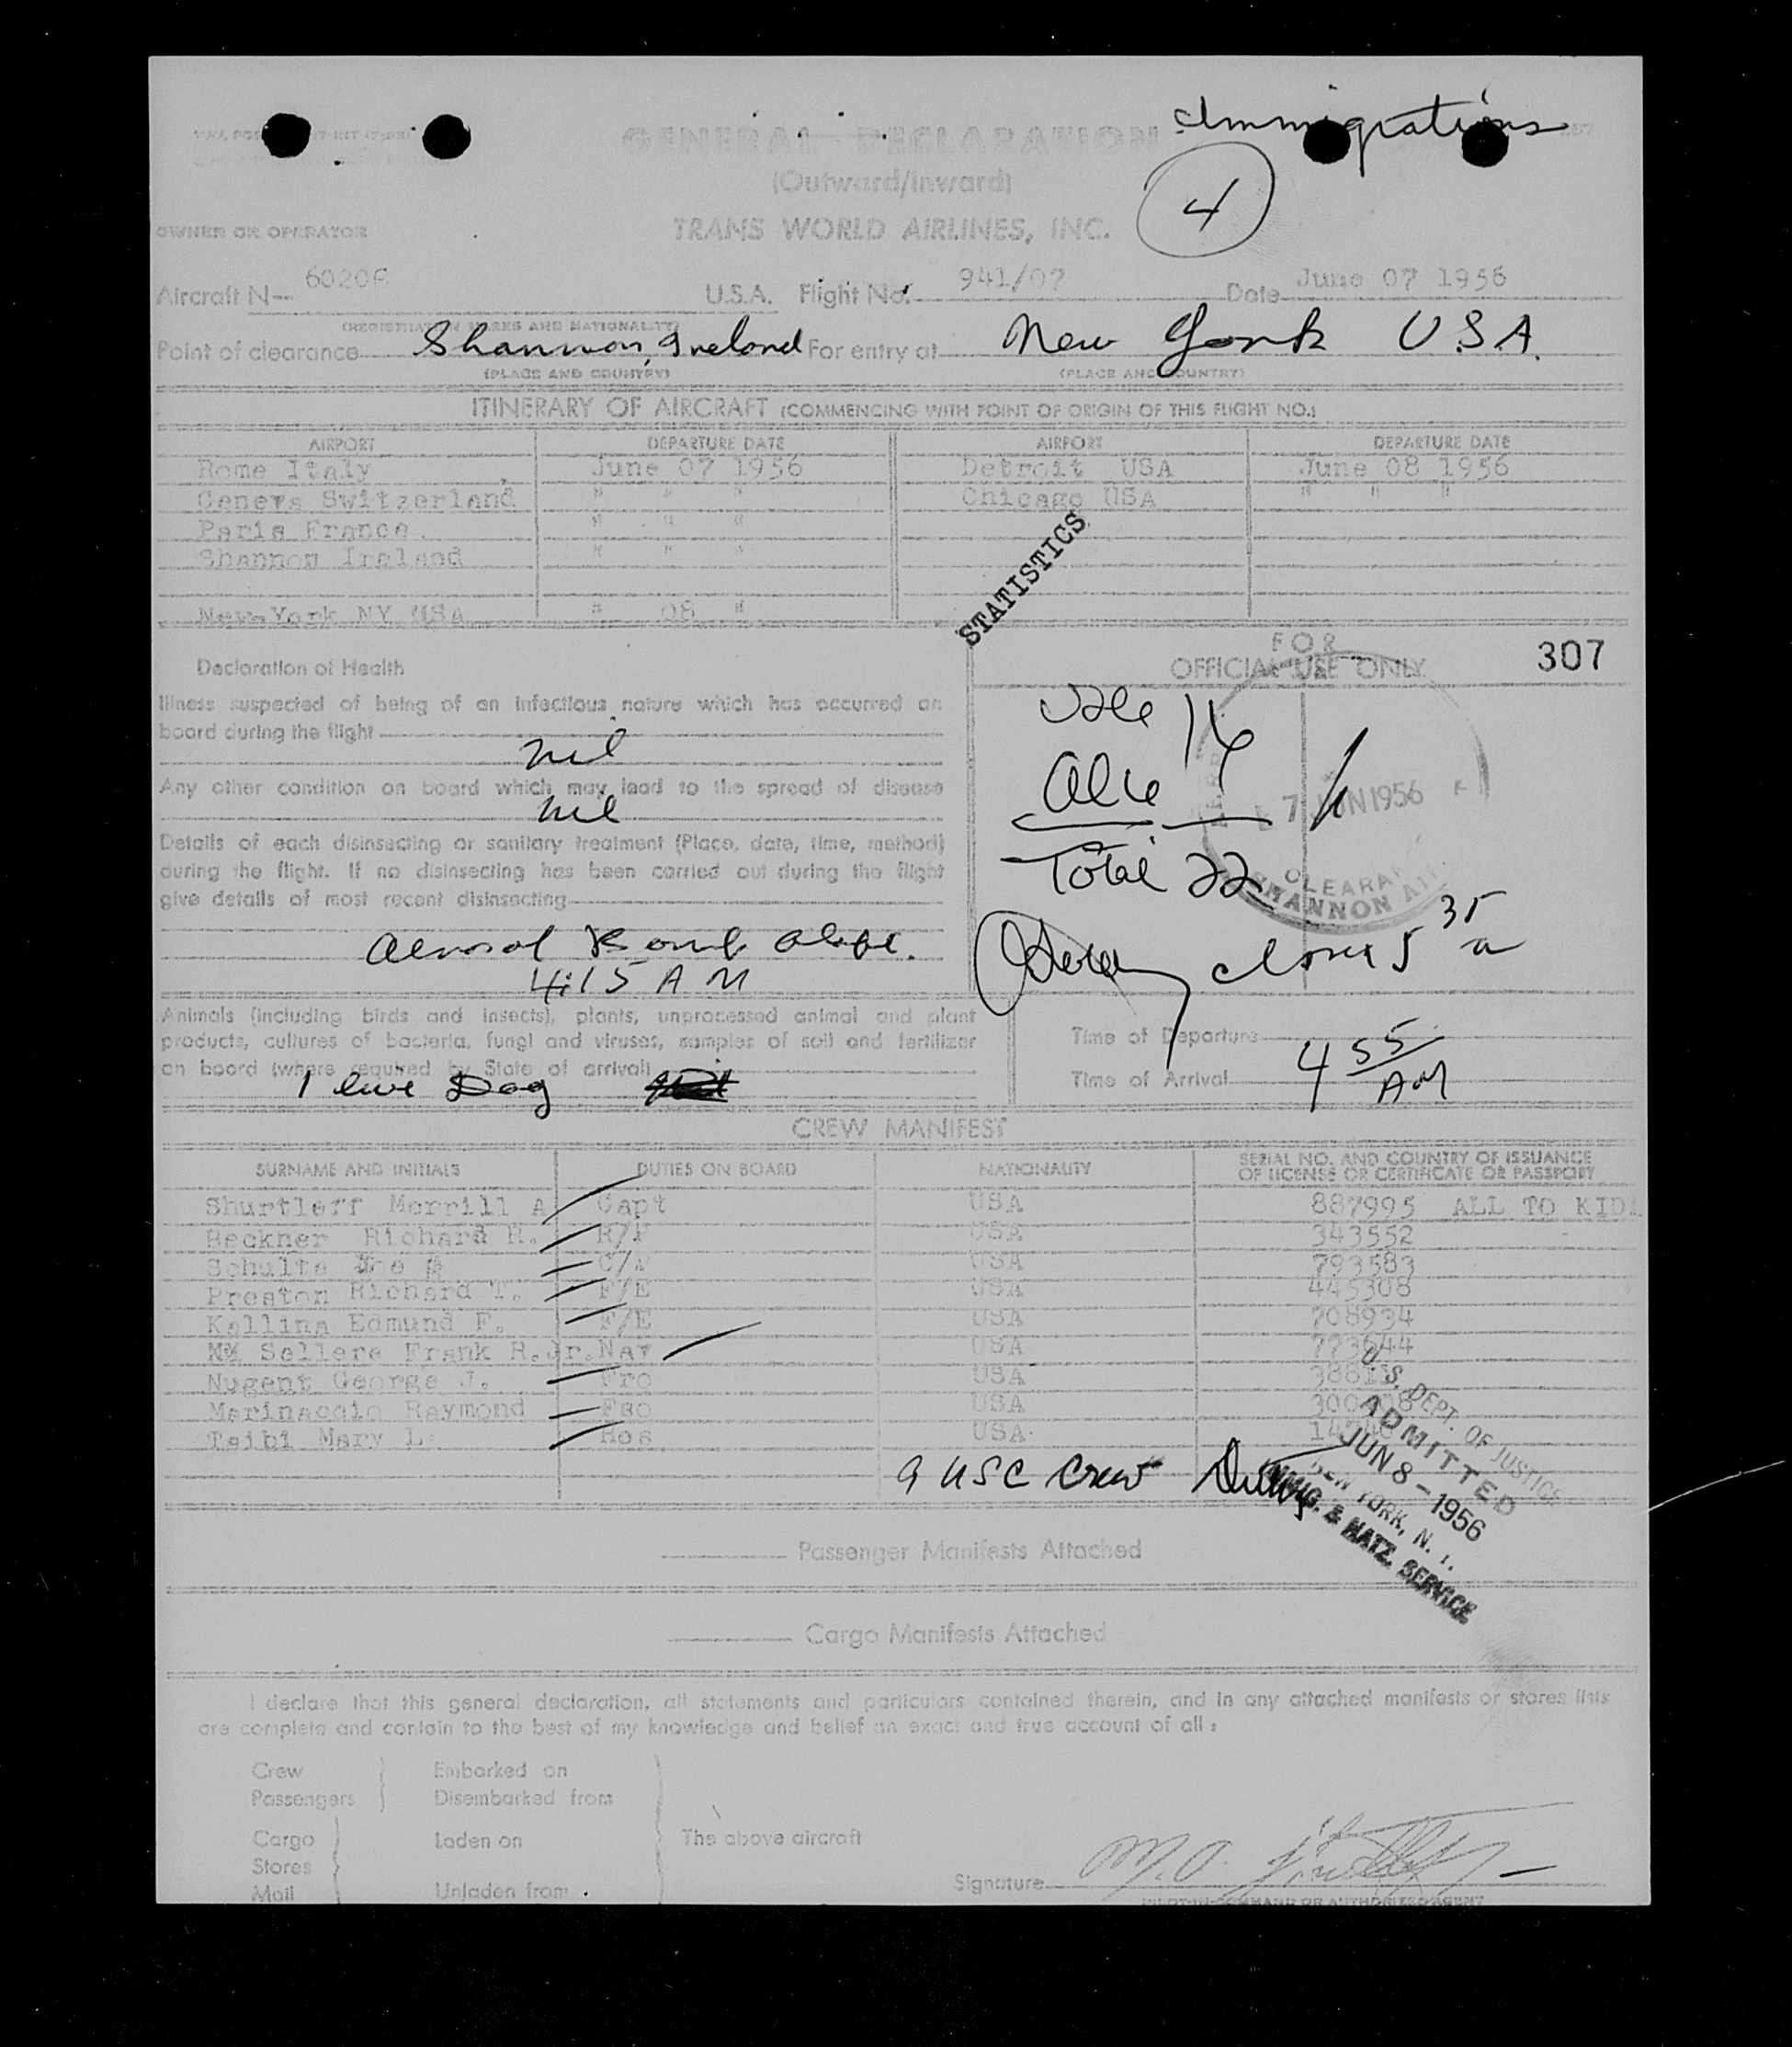 Immigrations
GENERAL DECLARATION
(Outward/Inward)
4
OWNER OR OPERATOR
TRANS WORLD AIRLINES, INC.
Aircraft N— U.S.A. Flight No. 941/07 Date June 07 1956
(REGISTRATION MARKS AND NATIONALITY)
Point of clearance Shannon, Ireland For entry at New York U.S.A.
(PLACE AND COUNTRY) (PLACE AND COUNTRY)
ITINERARY OF AIRCRAFT (COMMENCING WITH POINT OF ORIGIN OF THIS FLIGHT NO.)
AIRPORT DEPARTURE DATE AIRPORT DEPARTURE DATE
Rome Italy June 07 1956 Detroit USA June 08 1956
Geneva Switzerland " " " Chicago USA " " "
Paris France " " "
Shannon Ireland " " "
New York NY USA " 08 "
STATISTICS
FOR
OFFICIAL USE ONLY
307
Declaration of Health
Illness suspected of being of an infectious nature which has occurred on
board during the flight
nil
Any other condition on board which may lead to the spread of disease
nil
Details of each disinsecting or sanitary treatment (Place, date, time, method)
during the flight. If no disinsecting has been carried out during the flight
give details of most recent disinsecting
Aerosol Bomb
4:15 AM
Total 22
7 JUN 1956
SHANNON
5 35 a
Animals (including birds and insects), plants, unprocessed animal and plant
products, cultures of bacteria, fungi and viruses, samples of soil and fertilizer
on board (where required by State of arrival)
1 live Dog
Time of Departure
Time of Arrival 4 55 AM
CREW MANIFEST
SURNAME AND INITIALS DUTIES ON BOARD NATIONALITY SERIAL NO. AND COUNTRY OF ISSUANCE
OF LICENSE OR CERTIFICATE OR PASSPORT
Shurtleff Merrill A Capt USA 887995 ALL TO KIDL
Beckner Richard H. USA 343552
Schulte Joe USA 793583
Preston Richard T. F/E USA 445308
Kallina Edmund F. F/E USA 708934
Sellers Frank R. Jr. Nav USA 773644
Nugent George J. Fro USA
Marinaccio Raymond Fso USA
Taibi Mary L Hos USA
9 USC Crew
U.S. DEPT. OF JUSTICE
ADMITTED
JUN 8 - 1956
NEW YORK, N. Y.
IMMIG. & NATZ. SERVICE
Passenger Manifests Attached
Cargo Manifests Attached
I declare that this general declaration, all statements and particulars contained therein, and in any attached manifests or stores lists
are complete and contain to the best of my knowledge and belief an exact and true account of all :
Crew Embarked on
Passengers Disembarked from
Cargo Laden on The above aircraft
Stores
Mail Unladen from
Signature
PILOT-IN-COMMAND OR AUTHORIZED AGENT